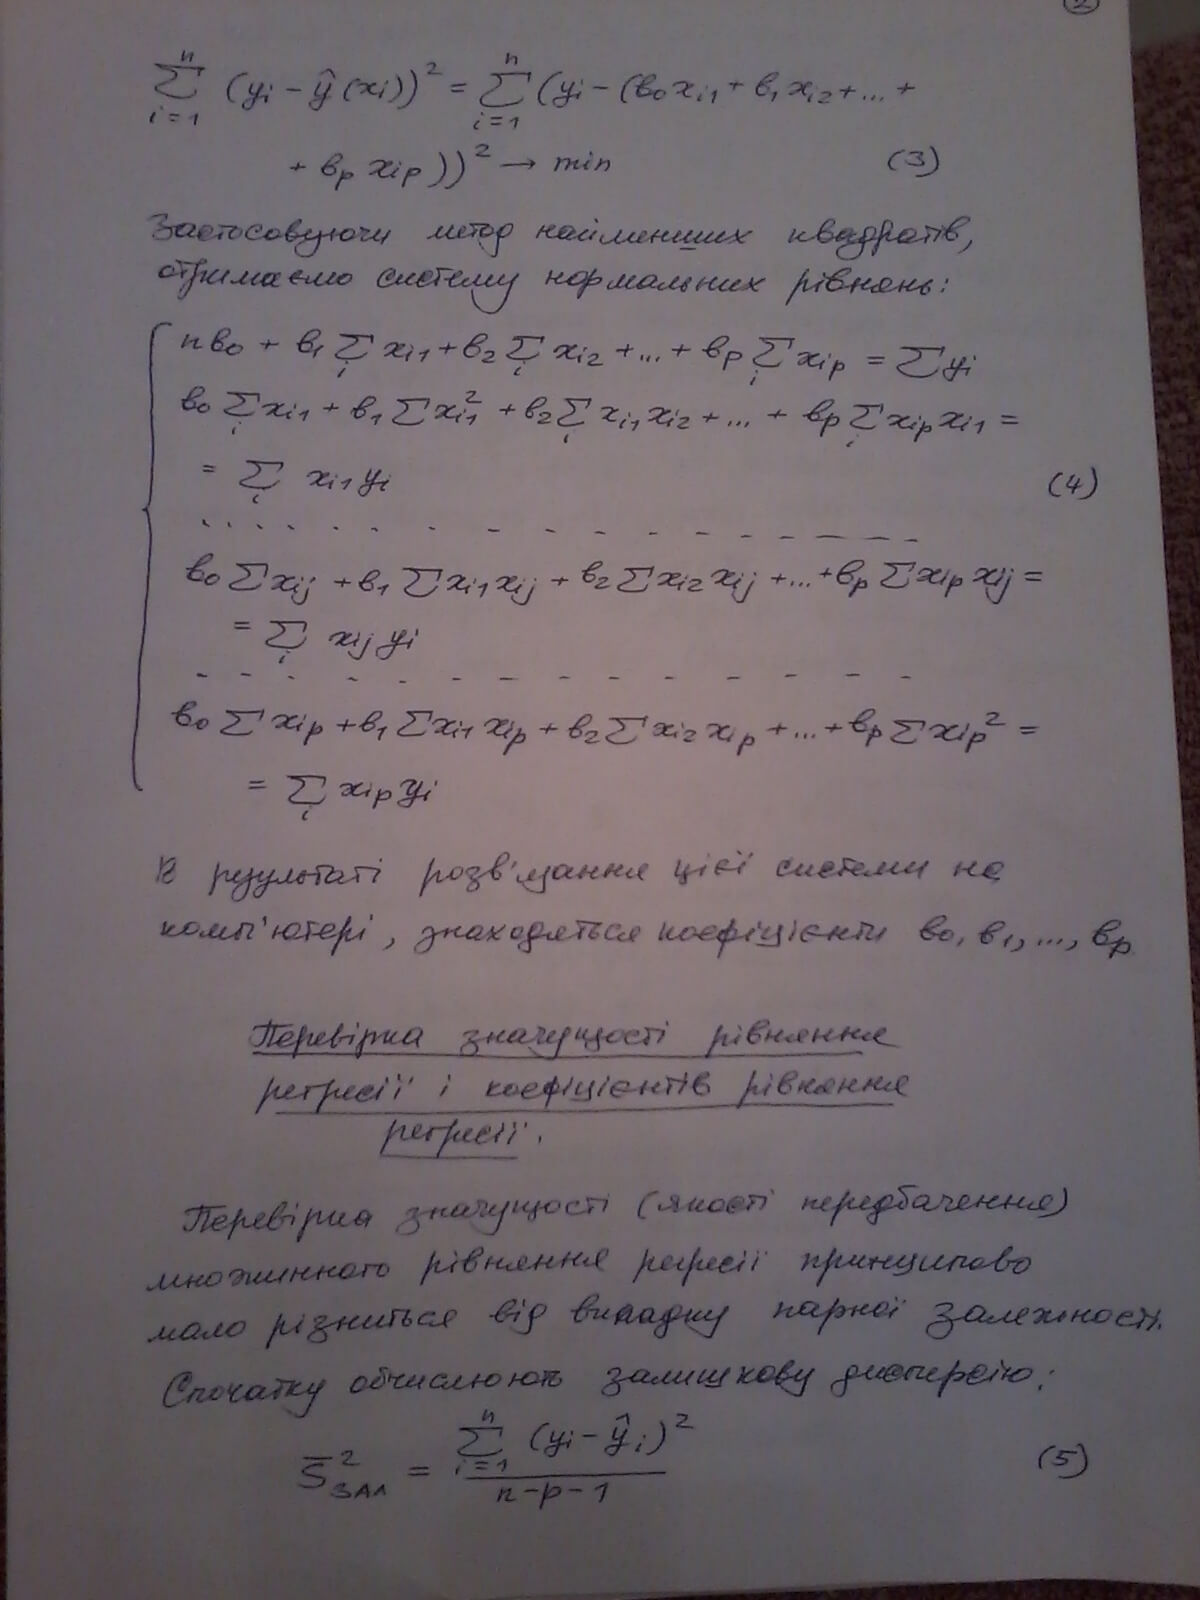 2
n n
∑ (yi – ŷ(xi))² = ∑ (yi – (в₀xi1 + в₁xi2 + ... +
i=1 i=1
+ вp xip))² → min (3)
Застосовуючи метод найменших квадратів,
отримаємо систему нормальних рівнянь:
nв₀ + в₁ ∑i xi1 + в₂ ∑i xi2 + ... + вp ∑i xip = ∑ yi
в₀ ∑i xi1 + в₁ ∑ xi1² + в₂ ∑i xi1 xi2 + ... + вp ∑i xip xi1 =
= ∑i xi1 yi (4)
в₀ ∑ xij + в₁ ∑ xi1 xij + в₂ ∑ xi2 xij + ... + вp ∑ xip xij =
= ∑i xij yi
в₀ ∑ xip + в₁ ∑ xi1 xip + в₂ ∑ xi2 xip + ... + вp ∑ xip² =
= ∑i xip yi
В результаті розв'язання цієї системи на
комп'ютері, знаходяться коефіцієнти в₀, в₁, ..., вp
Перевірка значущості рівняння
регресії і коефіцієнтів рівняння
регресії.
Перевірка значущості (якості передбачення)
множинного рівняння регресії принципово
мало різниться від випадку парної залежності.
Спочатку обчислюють залишкову дисперсію:
n
∑ (yi – ŷi)²
S̄²зал = i=1 (5)
n-p-1